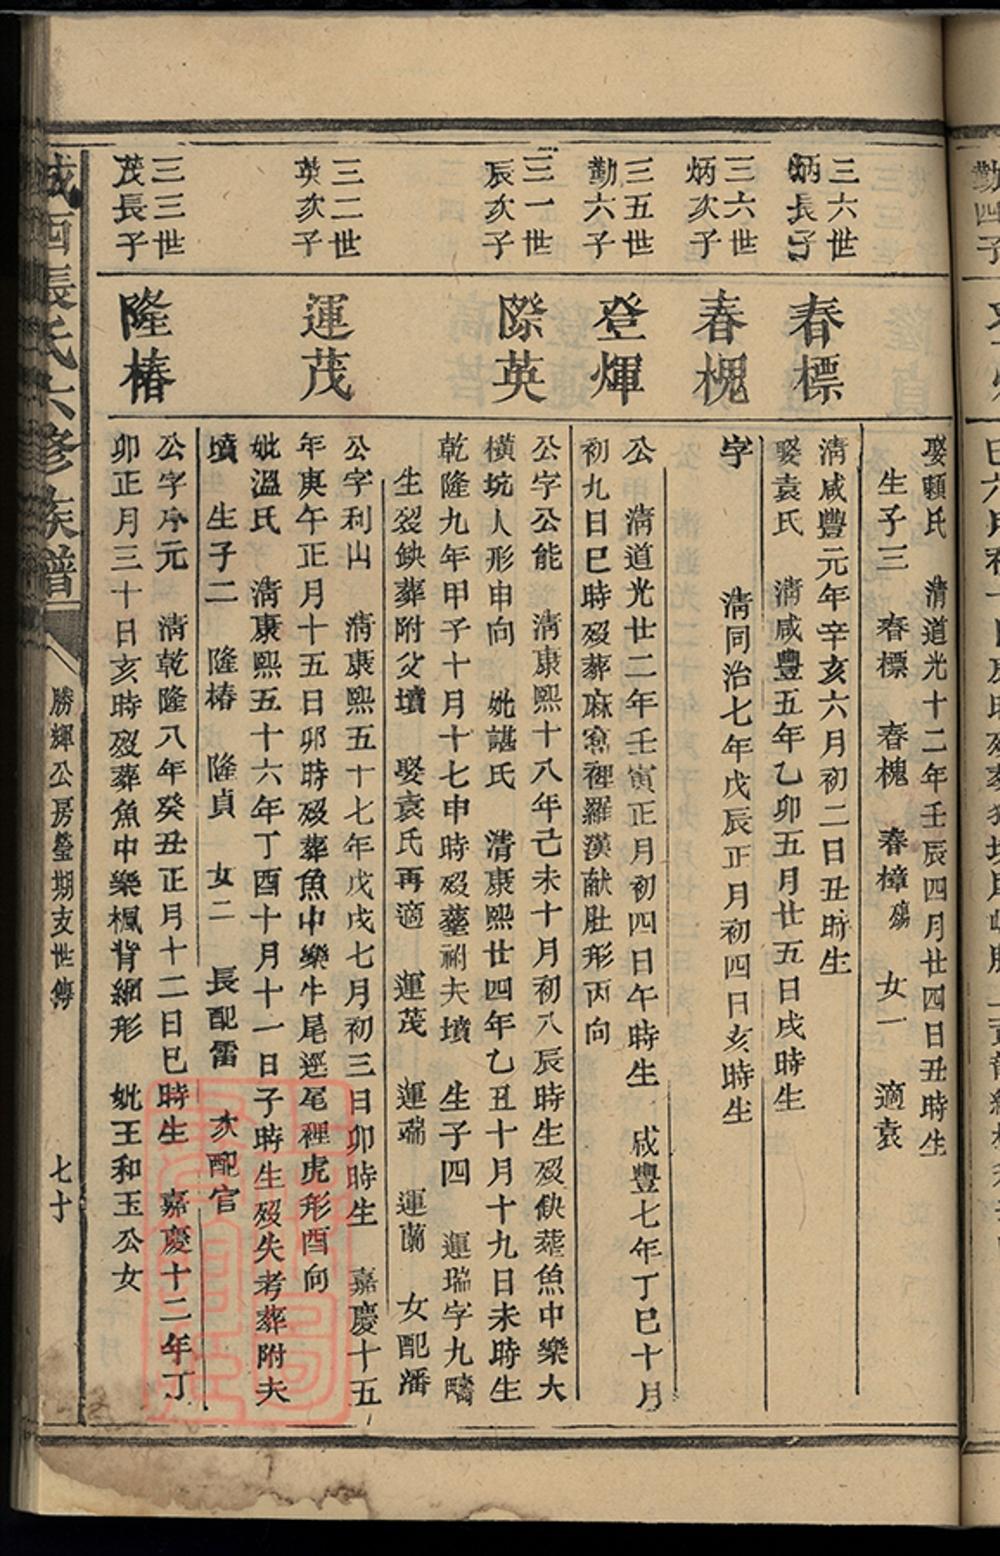 娶賴氏　清道光十二年壬辰四月廿四日丑時生
生子三　春標　春槐　春樟殤　女一　適袁
三六世
炳長子
春標
清咸豐元年辛亥六月初二日丑時生
娶袁氏　清咸豐五年乙卯五月廿五日戌時生
三六世
炳次子
春槐
字　清同治七年戊辰正月初四日亥時生
三五世
勤六子
登煇
公　清道光廿二年壬寅正月初四日午時生　咸豐七年丁巳十月
初九日巳時歿葬麻窩裡羅漢献肚形丙向
三一世
辰次子
際英
公字公能　清康熙十八年己未十月初八辰時生歿缺葬魚中樂大
橫坑人形申向　妣諶氏　清康熙廿四年乙丑十月十九日未時生
乾隆九年甲子十月十七申時歿葬祔夫墳　生子四　運瑞字九疇
生歿缺葬附父墳　娶袁氏再適　運茂　運端　運蘭　女配潘
三二世
英次子
運茂
公字利山　清康熙五十七年戊戌七月初三日卯時生　嘉慶十五
年庚午正月十五日卯時歿葬魚中樂牛尾逕尾裡虎形酉向
妣溫氏　清康熙五十六年丁酉十月十一日子時生歿失考葬附夫
墳　生子二　隆椿　隆貞　女二　長配雷　次配官
三三世
茂長子
隆椿
公字丹元　清乾隆八年癸丑正月十二日巳時生　嘉慶十二年丁
卯正月三十日亥時歿葬魚中樂楓背網形　妣王和玉公女
城西張氏六修族譜
勝輝公房瑩期支世傳
七十
勤四子